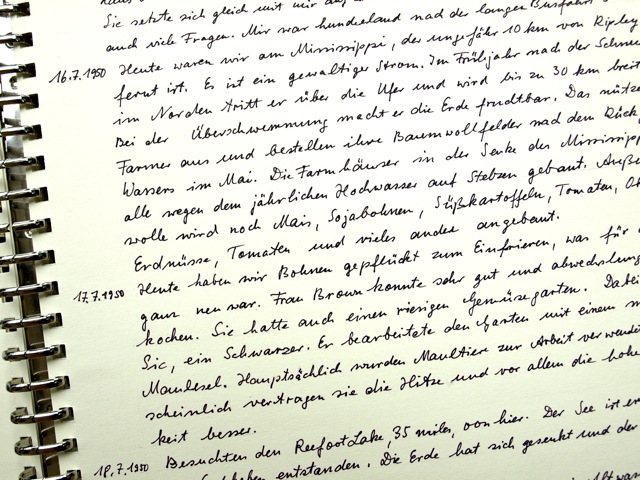 Sie setzte sich gleich mit mir auf
auch viele Fragen. Mir war hundeelend nach der langen Busfahrt
16.7.1950 Heute waren wir am Mississippi, der ungefähr 10 km von Ripley
fernt ist. Es ist ein gewaltiger Strom. Im Frühjahr nach der Schnee
im Norden tritt er über die Ufer und wird bis zu 30 km breit
Bei der Überschwemmung macht er die Erde fruchtbar. Das nütze
Farmer aus und bestellen ihre Baumwollfelder nach dem Rück
Wassers im Mai. Die Farmhäuser in der Senke des Mississipp
alle wegen dem jährlichen Hochwasser auf Stelzen gebaut. Auße
wolle wird noch Mais, Sojabohnen, Süßkartoffeln, Tomaten, Ok
Erdnüsse, Tomaten und vieles andere angebaut.
17.7.1950 Heute haben wir Bohnen gepflückt zum Einfrieren, was für
ganz neu war. Frau Brown konnte sehr gut und abwechslung
kochen. Sie hatte auch einen riesigen Gemüsegarten. Dabei
Sic, ein Schwarzer. Er bearbeitete den Garten mit einem
Maulesel. Hauptsächlich wurden Maultiere zur Arbeit verwende
scheinlich vertragen sie die Hitze und vor allem die hohe
keit besser.
18.7.1950 Besuchten den Reefoot Lake, 35 miles, von hier. Der See ist
entstanden. Die Erde hat sich gesenkt und der